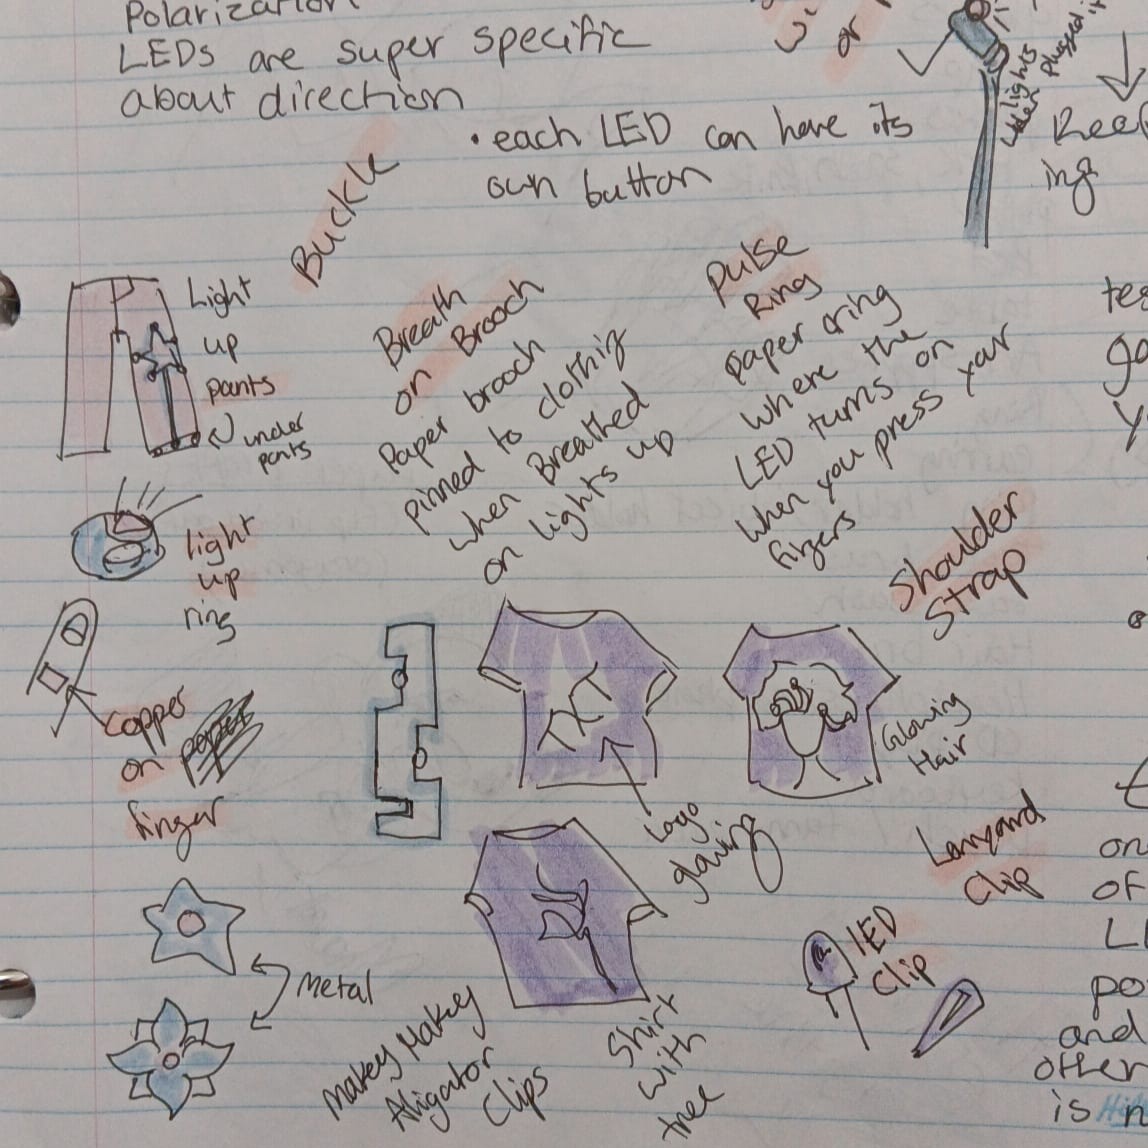 Polarization
LEDs are super specific
about direction
or
• each LED can have its
own button
Lights
when
plugged in
ing
Buckle
Light
up
pants
under
pants
Breath
on Brooch
Paper brooch
pinned to clothing
when Breathed
on lights up
Pulse
Ring
paper oring
where the
LED turns on
when you press your
fingers
Shoulder
Strap
light
up
ring
copper
on
finger
Logo
glowing
Glowing
Hair
Lanyard
Clip
LED
Clip
Metal
Makey Makey
Aligator
Clips
Shirt
with
tree
on
of
and
other
is